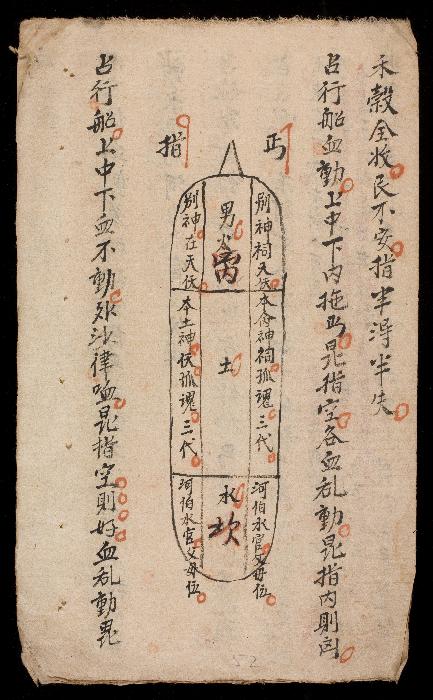 禾穀全收民不安指半淂半失
占行船血動上中下内拖丐昆指空各血乱動昆指内則凶
丐
指
別神祠天伏
本命神祠孤魂三代
河伯水官父母伍
男火
离
土
水
坎
別神在天伏
本土神伏孤魂三代
河伯水官父母伍
占行船上中下血不動外沙律血昆指空則好血乱動毘